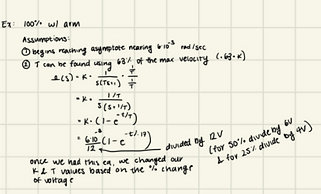 Ex: 100% w/ arm
Assumptions:
① begins reaching asymptote nearing 6·10⁻³ rad/sec
② T can be found using 63% of the max velocity (.63·K)
l(s) = K · 1/s(Ts+1) · 1/T / 1/T
= K · 1/T / s(s+1/T)
= K · (1 - e^-t/T)
= 6·10⁻³/12 (1 - e^-t/.17)
divided by 12V
(for 50% divide by 6V
& for 25% divide by 9V)
once we had this eq, we changed our
K & T values based on the % change
of voltage